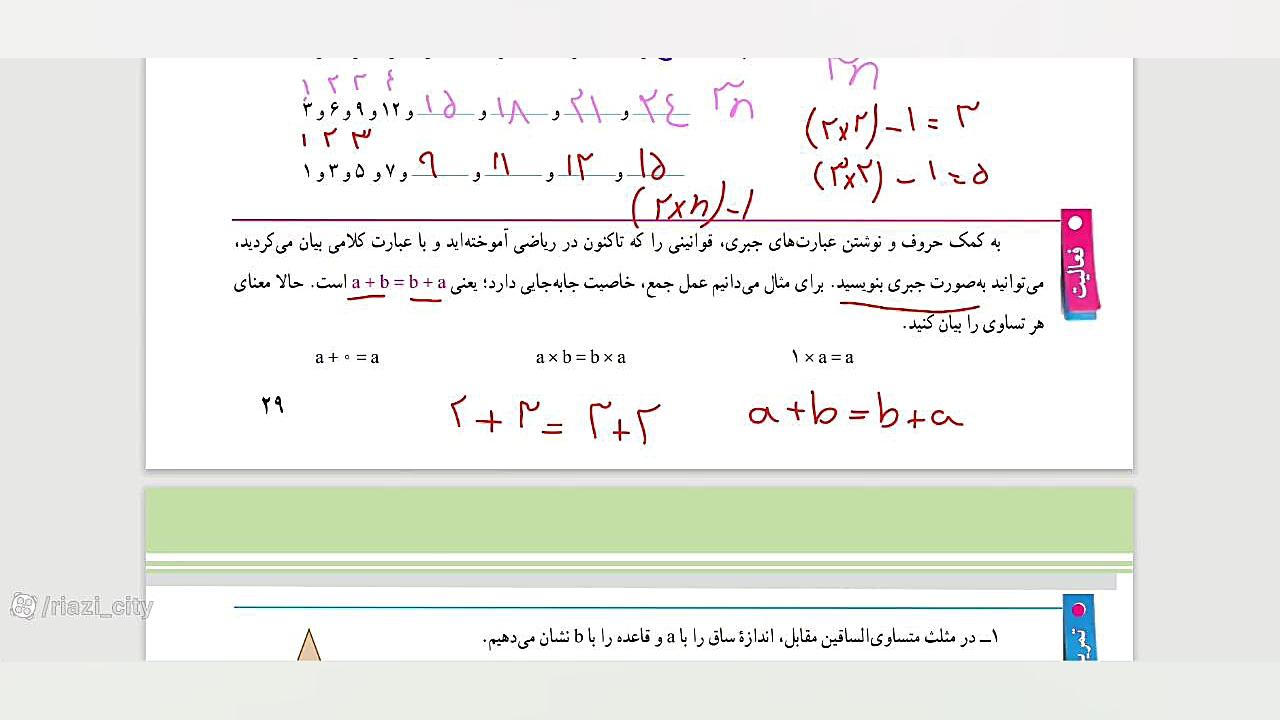 ۳n
۱ ۲ ۳ ۴
۳ و ۶ و ۹ و ۱۲ و ۱۵ و ۱۸ و ۲۱ و ۲۴ ۳n
(۲×۲) − ۱ = ۳
۱ ۲ ۳
۱ و ۳ و ۵ و ۷ و ۹ و ۱۱ و ۱۳ و ۱۵
(۳×۲) − ۱ = ۵
(۲×n) −۱
فعالیت
به کمک حروف و نوشتن عبارت‌های جبری، قوانینی را که تاکنون در ریاضی آموخته‌اید و با عبارت کلامی بیان می‌کردید،
می‌توانید به‌صورت جبری بنویسید. برای مثال می‌دانیم عمل جمع، خاصیت جابه‌جایی دارد؛ یعنی a + b = b + a است. حالا معنای
هر تساوی را بیان کنید.
a + ۰ = a a × b = b × a ۱ × a = a
۲۹ ۲ + ۳ = ۳ + ۲ a + b = b + a
/riazi_city
تمرین
۱ــ در مثلث متساوی‌الساقین مقابل، اندازهٔ ساق را با a و قاعده را با b نشان می‌دهیم.